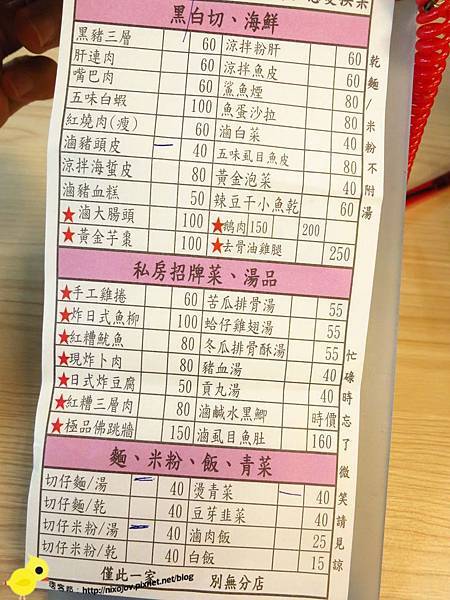 黑白切、海鮮
黑豬三層 60 涼拌粉肝 60
肝連肉 60 涼拌魚皮 60
嘴巴肉 60 鯊魚煙 80
五味白蝦 100 魚蛋沙拉 80
紅燒肉(瘦) 60 滷白菜 40
滷豬頭皮 40 五味虱目魚皮 80
涼拌海蜇皮 80 黃金泡菜 40
滷豬血糕 50 辣豆干小魚乾 60
★滷大腸頭 100 ★鵝肉 150 200
★黃金芋棗 100 ★去骨油雞腿 250
乾麵/米粉不附湯
私房招牌菜、湯品
★手工雞捲 60 苦瓜排骨湯 55
★炸日式魚柳 100 蛤仔雞翅湯 55
★紅糟魷魚 80 冬瓜排骨酥湯 55
★現炸卜肉 80 豬血湯 40
★日式炸豆腐 50 貢丸湯 40
★紅糟三層肉 80 滷鹹水黑鯽 時價
★極品佛跳牆 150 滷虱目魚肚 160
麵、米粉、飯、青菜
切仔麵/湯 40 燙青菜 40
切仔麵/乾 40 豆芽韭菜 40
切仔米粉/湯 40 滷肉飯 25
切仔米粉/乾 40 白飯 15
忙碌時忘了微笑請見諒
僅此一家 別無分店
http://nixojov.pixnet.net/blog